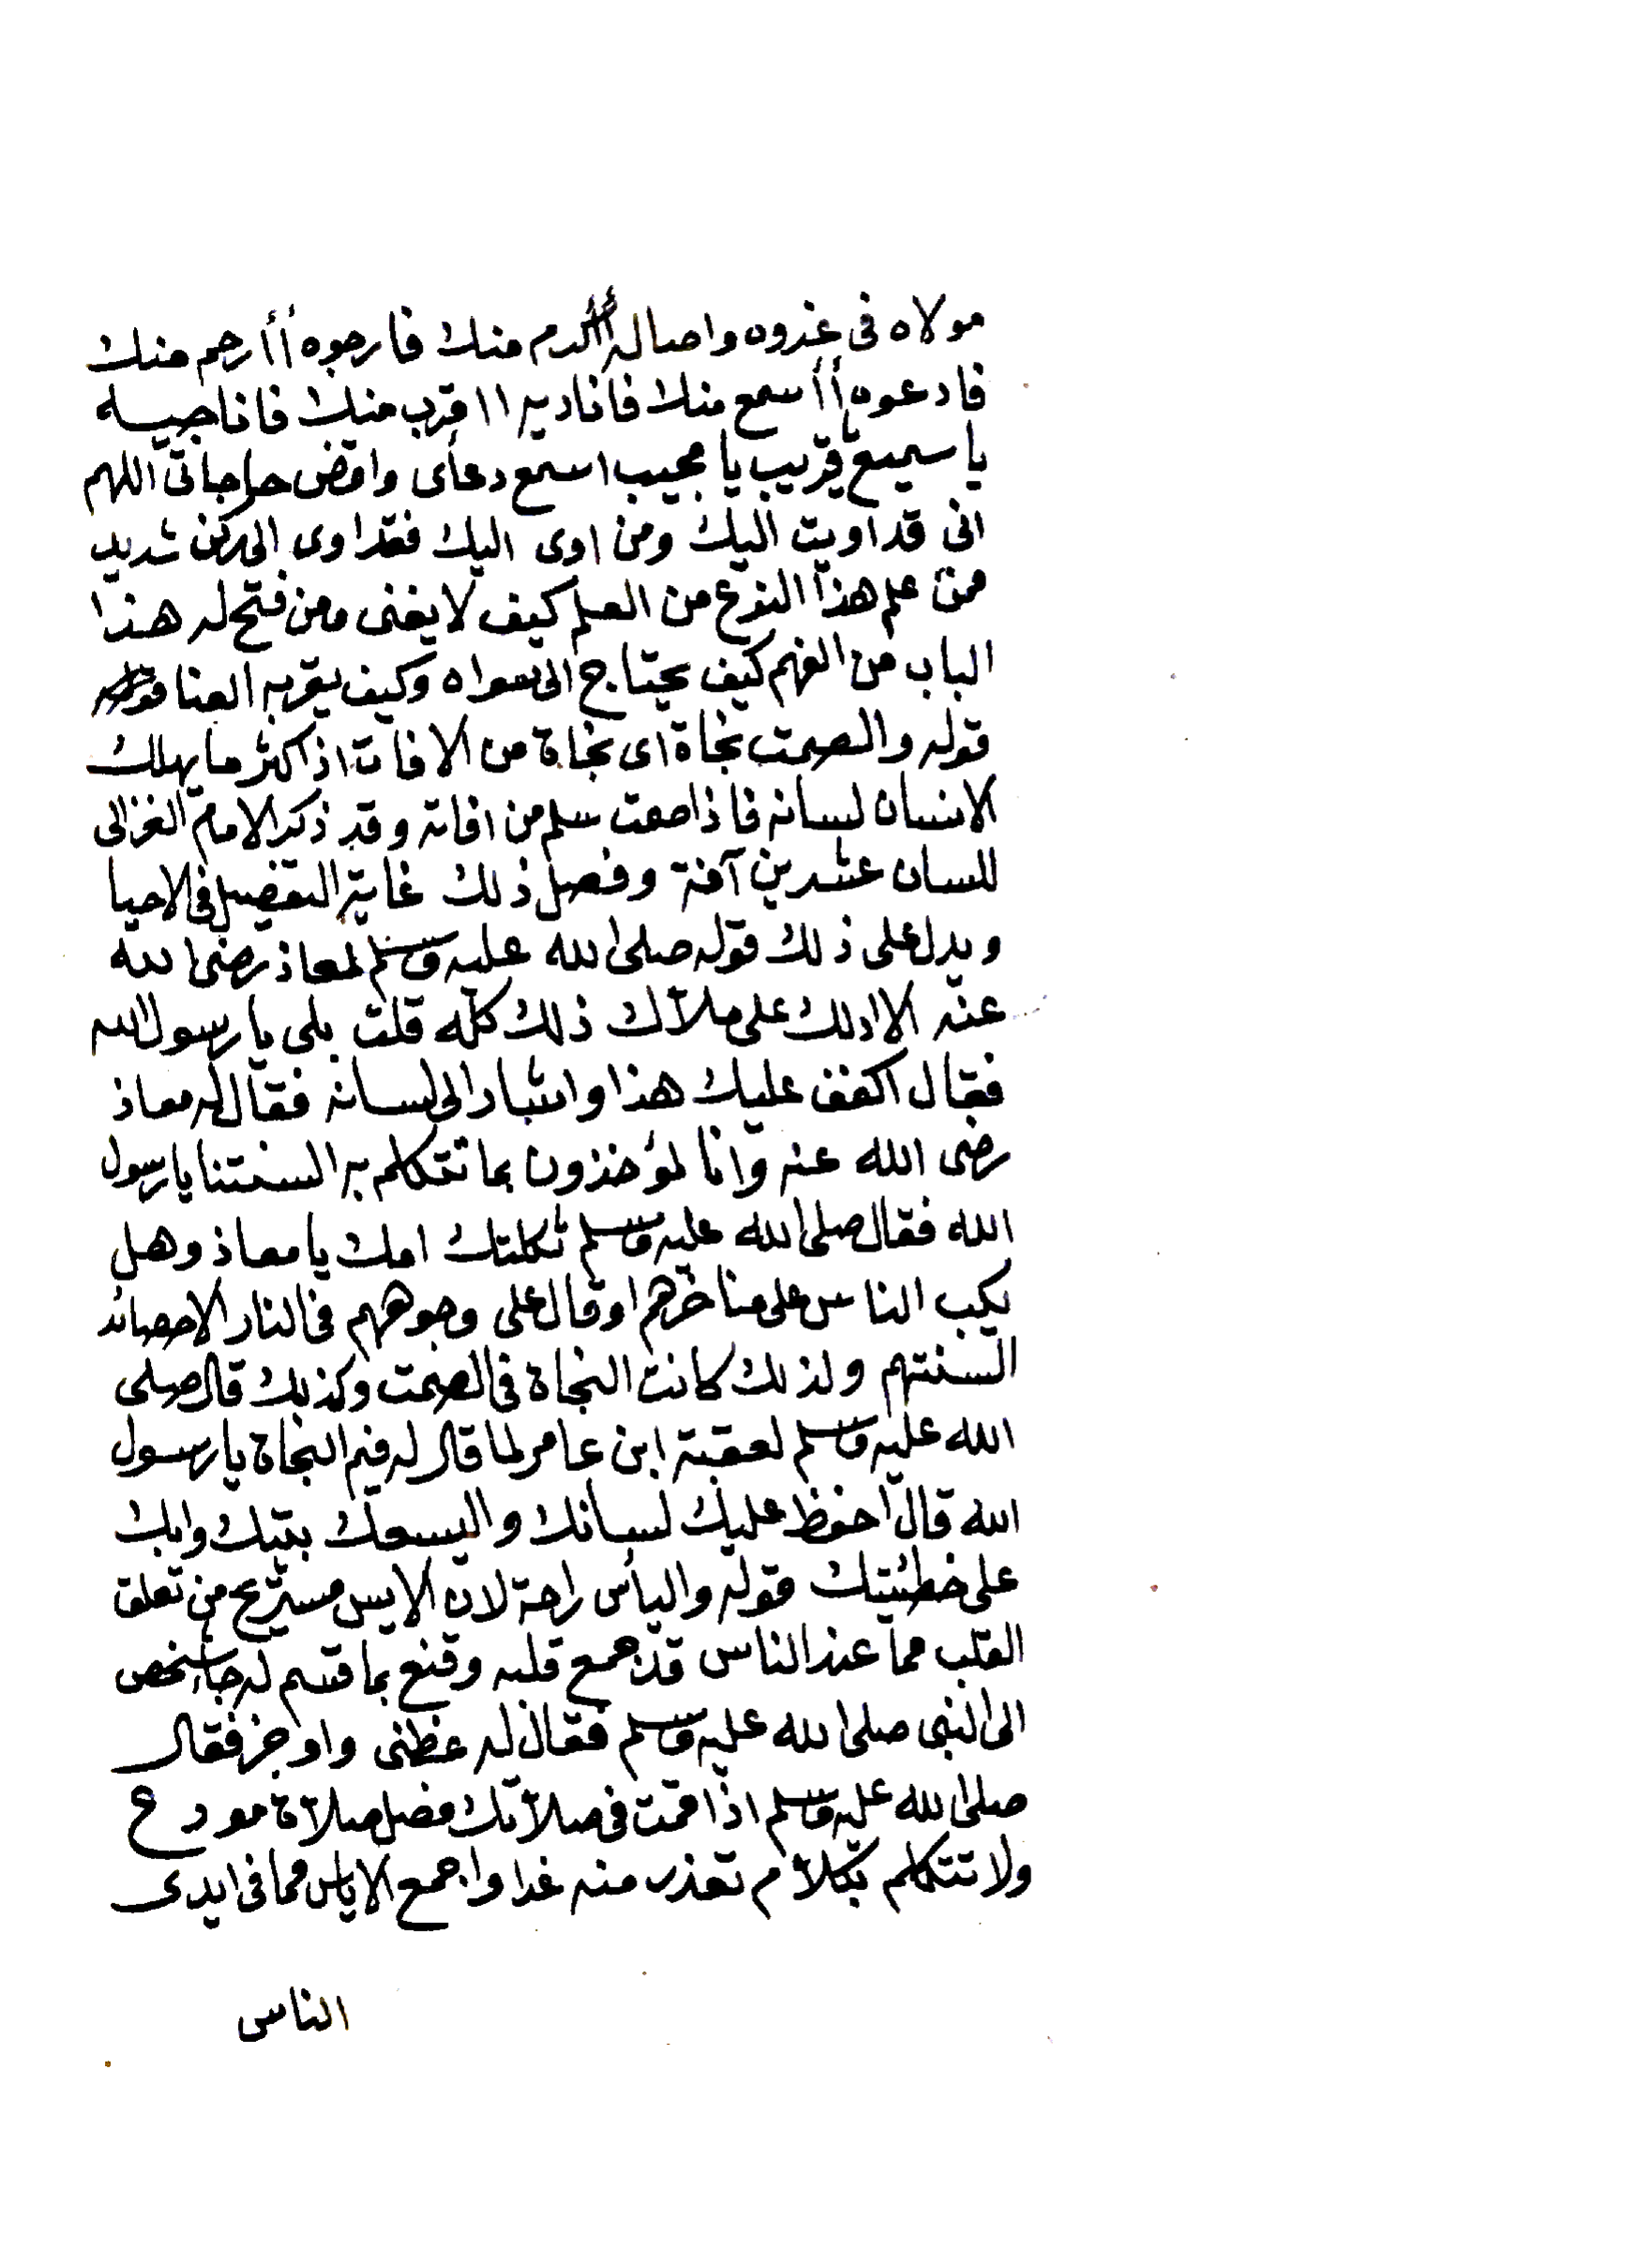 مولاه في غدوه واصاله أأكرم منك فارجوه أأرحم منك
فادعوه أأسمع منك فاناديه ااقرب منك فاناجيه
يا سميع يا قريب يا مجيب اسمع دعأي واقض حاجاتي اللهم
اني قد اويت اليك ومن اوى اليك فقد اوى الى ركن شديد
فمن علم هذا النوع من العلم كيف لا يغنى ومن فتح له هذا
الباب من الفهم كيف يحتاج الى سواه وكيف يقربه العنا
قوله والصمت نجاة اي نجاة من الافات اذ اكثر ما يهلك
الانسان لسانه فاذا صمت سلم من افاته وقد ذكر الامام الغزالي
للسان عشرين آفة وفصل ذلك غاية التفصيل في الاحيا
ويدل على ذلك قوله صلى الله عليه وسلم لمعاذ رضى الله
عنه الا ادلك على ملاك ذلك كله قلت بلى يا رسول الله
فقال اكفف عليك هذا واشار الى لسانه فقال له معاذ
رضى الله عنه وانا لمؤخذون بما نتكلم به السنتنا يا رسول
الله فقال صلى الله عليه وسلم ثكلتك امك يا معاذ وهل
يكب الناس على مناخرهم او قال على وجوههم في النار الا حصائد
السنتهم ولذلك كانت النجاة في الصمت وكذلك قال صلى
الله عليه وسلم لعقبة ابن عامر لما قال له فيم النجاة يا رسول
الله قال احفظ عليك لسانك واليسعك بيتك وابك
على خطيئتك قوله والياس راحة لان الايس مستريح من تعلق
القلب مما عند الناس قد جمع قلبه وقنع بما قسم له جا شخص
الى النبي صلى الله عليه وسلم فقال له عظني واوجز فقال
صلى الله عليه وسلم اذا قمت في صلاتك فصل صلاة مودع
ولا تتكلم بكلام تعذر منه غدا واجمع الاياس مما في ايدى
الناس